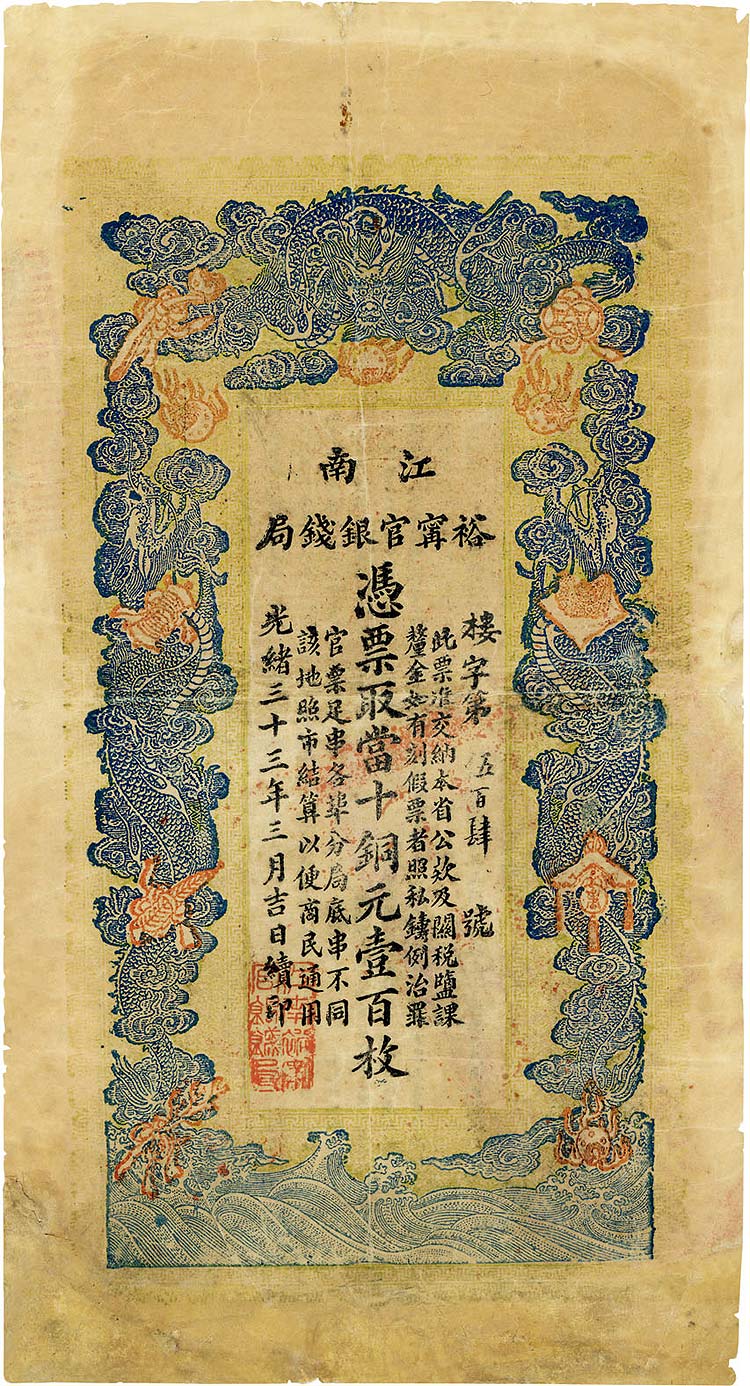 江南
裕甯官銀錢局
樓字第伍百肆號
此票准交納本省公款及關稅鹽課
釐金如有刻假票者照私鑄例治罪
憑票取當十銅元壹百枚
官票足串各埠分局底串不同
該地照市結算以便商民通用
光緒三十三年三月吉日續印